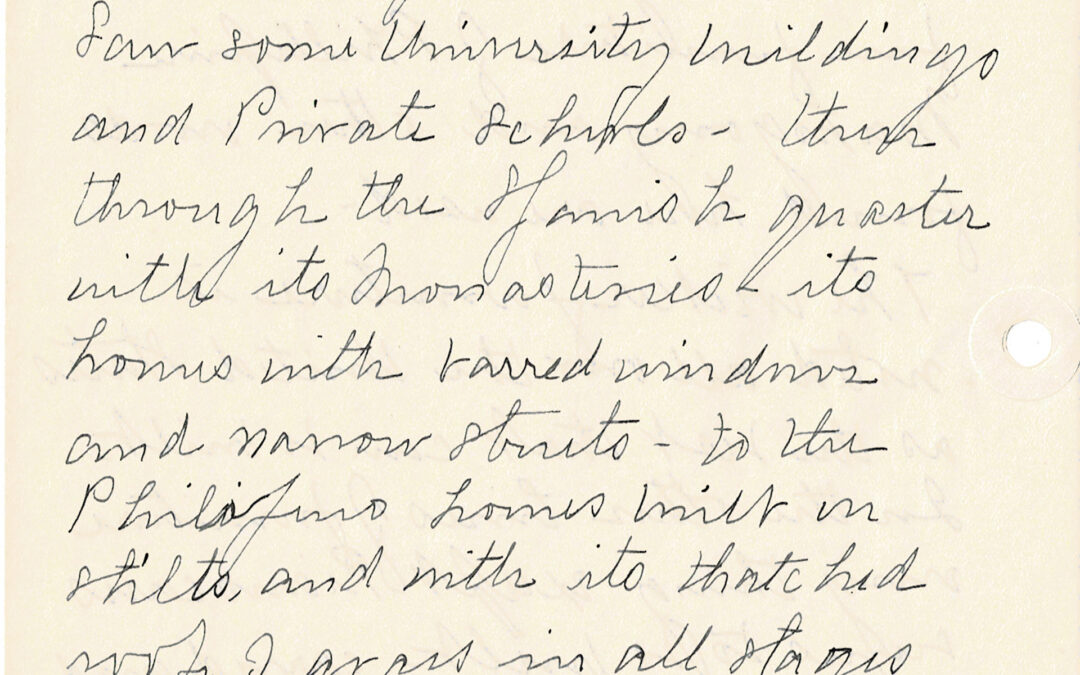 Saw some University buildings
and Private Schools - then
through the Spanish quarter
with its Monasteries - its
homes with barred windows
and narrow streets - to the
Philipino homes built in
stilts, and with its thatched
roof of grass in all stages